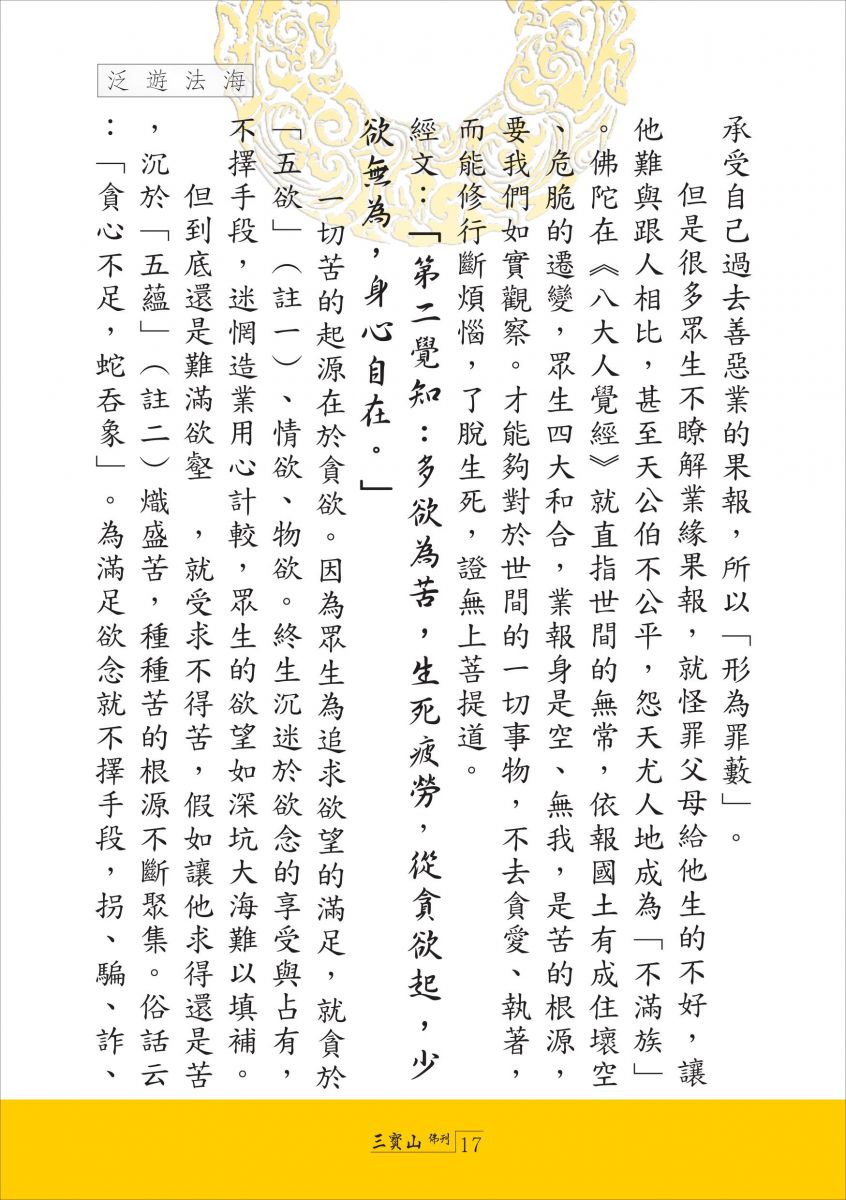 泛遊法海
承受自己過去善惡業的果報，所以「形為罪藪」。
但是很多眾生不瞭解業緣果報，就怪罪父母給他生的不好，讓
他難與跟人相比，甚至天公伯不公平，怨天尤人地成為「不滿族」
。佛陀在《八大人覺經》就直指世間的無常，依報國土有成住壞空
、危脆的遷變，眾生四大和合，業報身是空、無我，是苦的根源，
要我們如實觀察。才能夠對於世間的一切事物，不去貪愛、執著，
而能修行斷煩惱，了脫生死，證無上菩提道。
經文：「第二覺知：多欲為苦，生死疲勞，從貪欲起，少
欲無為，身心自在。」
一切苦的起源在於貪欲。因為眾生為追求欲望的滿足，就貪於
「五欲」（註一）、情欲、物欲。終生沉迷於欲念的享受與占有，
不擇手段，迷惘造業用心計較，眾生的欲望如深坑大海難以填補。
但到底還是難滿欲壑　，就受求不得苦，假如讓他求得還是苦
，沉於「五蘊」（註二）熾盛苦，種種苦的根源不斷聚集。俗話云
：「貪心不足，蛇吞象」。為滿足欲念就不擇手段，拐、騙、詐、
三寶山 佛刊 17